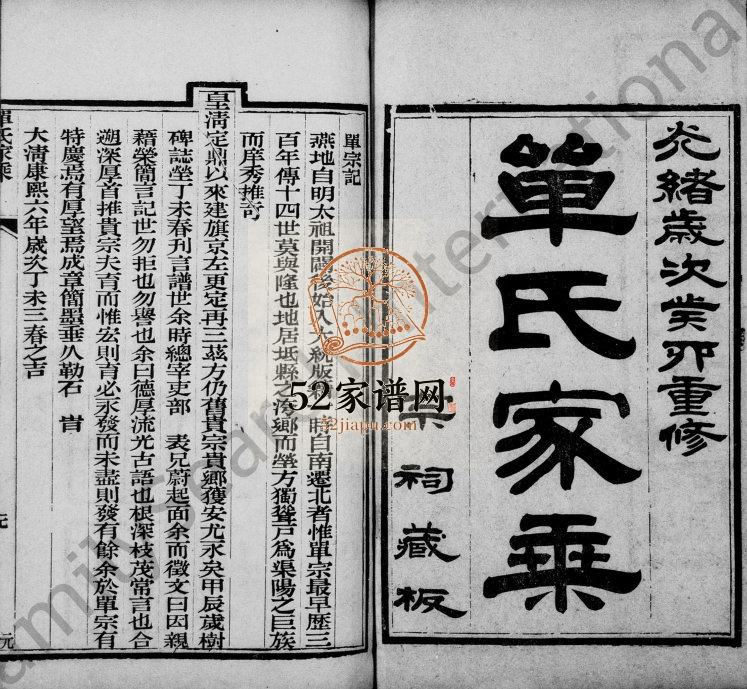 光緒歲次癸卯重修
單氏家乘
祠藏板
單宗記
燕地自明太祖開闢後始入大統版 時自南遷北者惟單宗最早歷三
百年傳十四世莫與隆也地居坻縣之 鄉而塋方獨聳戸為渠陽之巨族
而庠秀推奇
皇清定鼎以來建旗京左更定再三茲方仍舊貴宗貴鄉獲安尤永矣甲辰歲樹
碑誌塋丁未春刋言譜世余時總宰吏部 表兄蔚起面余而徵文曰因親
藉榮簡言記世勿拒也勿譽也余曰德厚流光古語也根深枝茂常言也合
遡深厚首推貴宗夫育而惟宏則育必永發而未盡則發有餘余於單宗有
特慶焉有厚望焉成章簡墨垂久勒石 旹
大清康熙六年歲次丁未三春之吉
單氏家乘
元
元
52家谱网
52jiapu.com
Family Search International